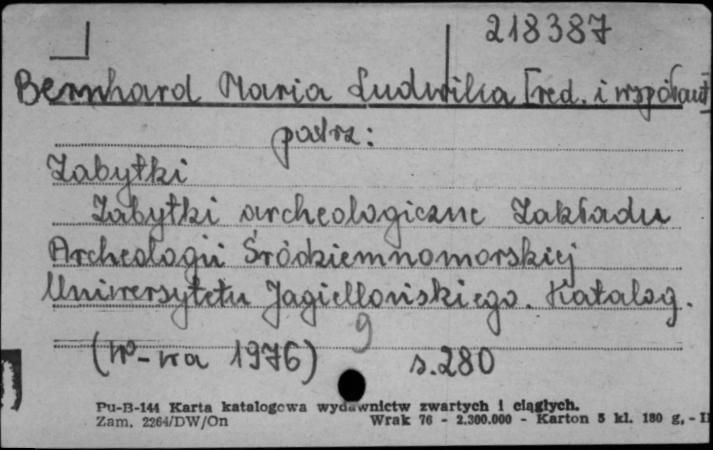 218387
Bernhard Maria Ludwika [red. i współaut]
patrz:
Zabytki
Zabytki archeologiczne Zakładu
Archeologii Śródziemnomorskiej
Uniwersytetu Jagiellońskiego. Katalog.
9
(W-wa 1976) s.280
Pu-B-144 Karta katalogowa wydawnictw zwartych i ciągłych.
Zam. 2264/DW/On Wrak 76 - 2.300.000 - Karton 5 kl. 180 g, - II